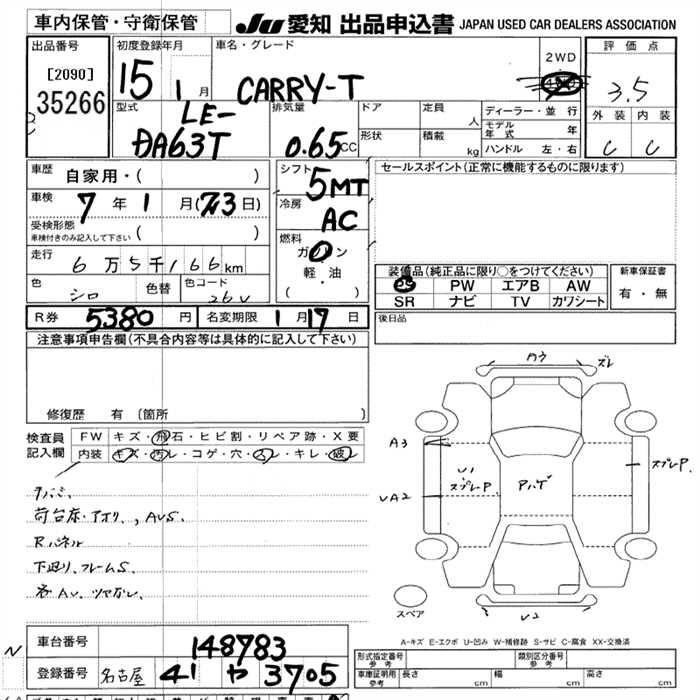 車内保管・守衛保管
JU 愛知 出品申込書 JAPAN USED CAR DEALERS ASSOCIATION
出品番号
[2090]
35266
初度登録年月
15 1 月
車名・グレード
CARRY-T
2WD
評価点
3.5
外装 内装
C C
型式
LE-
DA63T
排気量
0.65 CC
ドア
形状
定員 人
積載 kg
ディーラー・並行
モデル年式 年
ハンドル 左・右
車歴 自家用・( )
車検 7 年 1 月 ( 23 日)
受検形態
車検付きのみ記入して下さい ( )
走行 6 万 5 千 166 km
色 シロ 色替 色コード 26U
シフト 5MT
冷房 AC
燃料
ガソリン
軽・油
( )
セールスポイント (正常に機能するものに限ります)
装備品 (純正品に限り○をつけてください)
PS PW エアB AW
SR ナビ TV カワシート
新車保証書
有・無
後日品
R券 5380 円 名変期限 1 月 17 日
注意事項申告欄 (不具合内容等は具体的に記入して下さい)
修復歴 有 [箇所
検査員
記入欄
FW キズ・飛石・ヒビ割・リペア跡・X要
内装 キズ・汚レ・コゲ・穴・スレ・キレ・破レ
荷台床・アオリ, AUS.
Rパネル
下廻リ、フレームS.
AU ズレ
A3
UA2
U1
スプレP.
アハゲ
スプレP.
U2
スペア
A-キズ E-エクボ U-凹み W-補修跡 S-サビ C-腐食 XX-交換済
N
車台番号 148783
登録番号 名古屋 41 や 3705
形式指定番号
参考
類別区分番号
参考
車庫証明用
参考
長さ cm 幅 cm 高さ cm